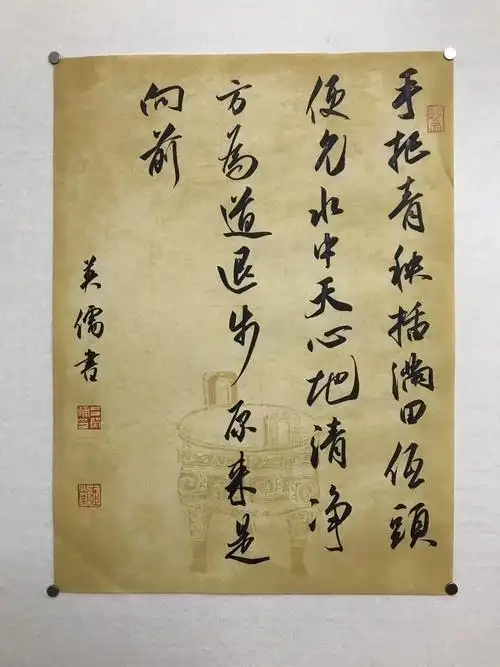 手把青秧插滿田低頭
便見水中天心地清净
方為道退步原来是
向前
英儒書